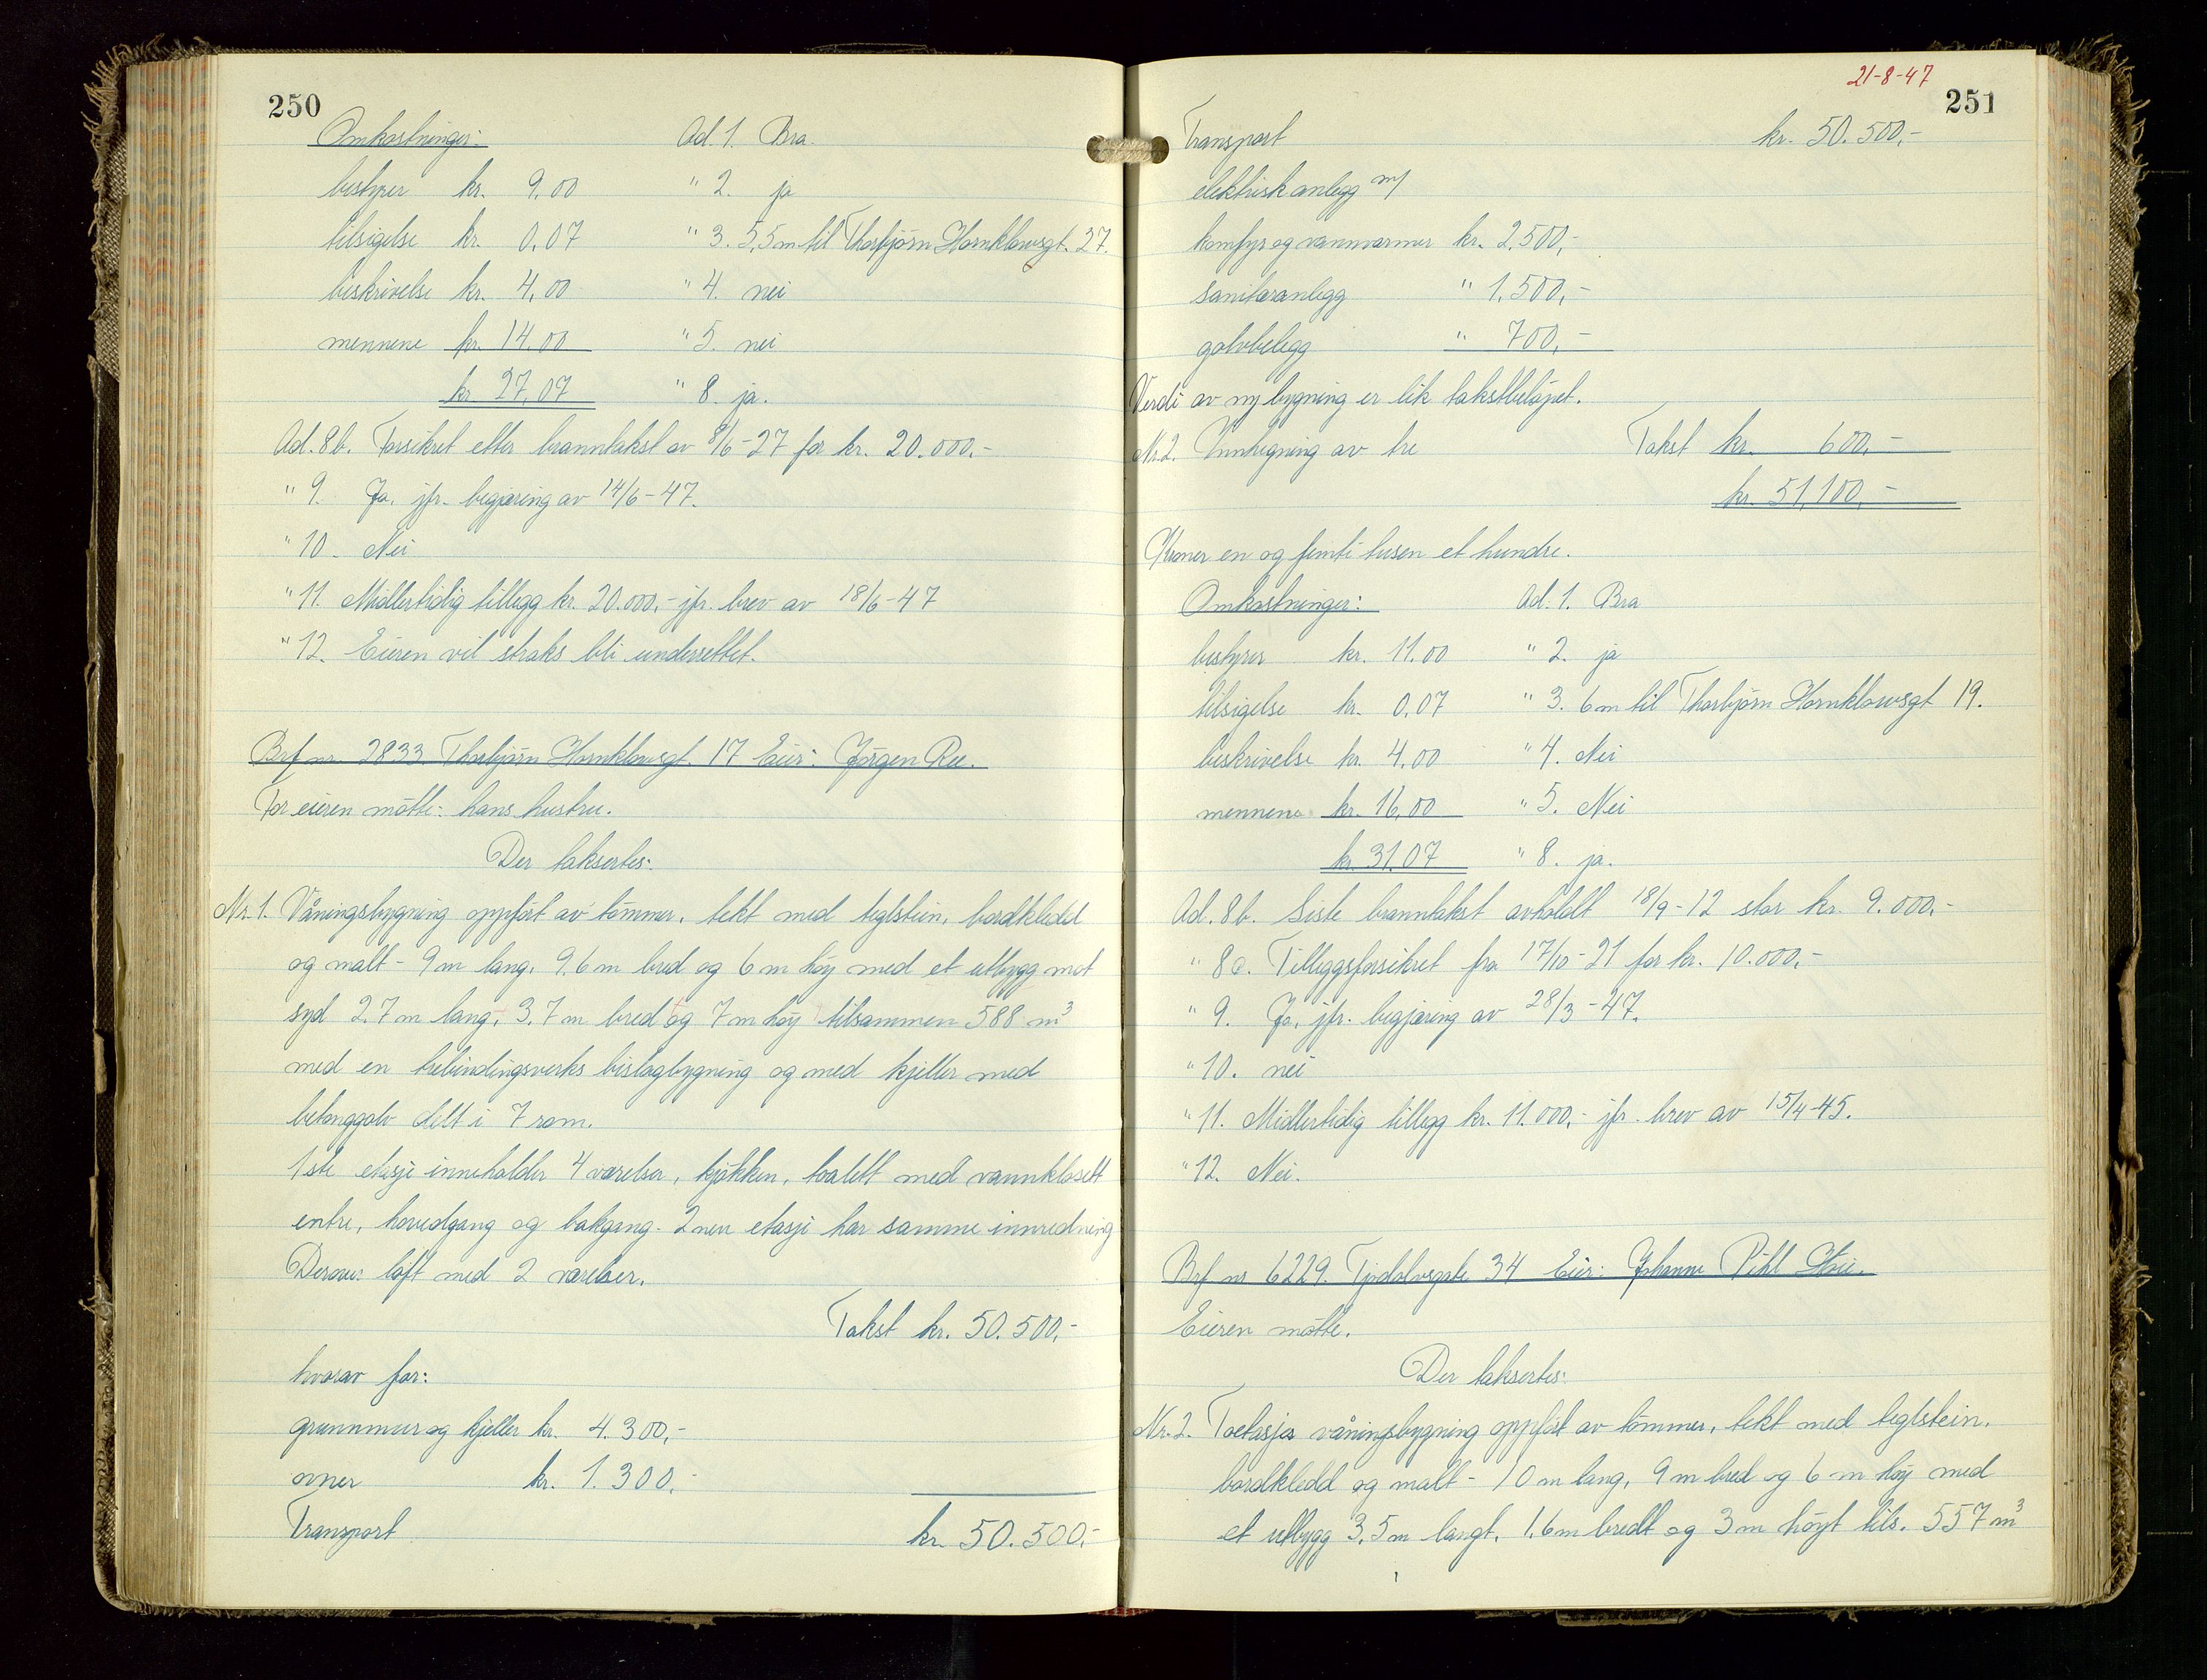 250
Omkostninger: Ad. 1. Bra.
bestyrer kr. 9,00 " 2. ja
tilsigelse kr. 0,07 " 3. 5,5 m til Thorbjörn Hornklowsgt. 27.
beskrivelse kr. 4,00 " 4. nei
mennene kr. 14.00 " 5. nei
kr 27,07 " 8. ja.
Ad. 8b. Forsikret etter branntakst av 8/6-27 for kr. 20.000.-
" 9. Ja. jfr. begjæring av 14/6-47.
" 10 - Nei
" 11. Midlertidig tillegg kr. 20.000,- jfr. brev av 18/6-47
" 12. Eieren vil straks bli undersettet.
Brf nr. 2833 Thorbjörn Hornklowsgt. 17 Eier: Jørgen Ree.
For eieren mötte: hans hustru.
Der taksertes:
Nr. 1. Våningsbygning oppfört av tömmer, tekt med teglstein, bordkledd
og malt - 9 m lang, 9.6 m bred og 6 m höy med et utbygg mot
syd 2.7 m lang, 3.7 m bred og 7 m höy tilsammen 588 m³
med en trebindingsverks bislagbygning og med kjeller med
betonggolv delt i 7 rom.
1ste etasje inneholder 4 værelser, kjökken, toalett med vannklosett
entre, hovedgang og bakgang. 2nen etasje har samme innredning
Derover loft med 2 værelser.
Takst kr. 50.500,-
hvorav for:
grunnmur og kjeller kr. 4.300,-
ovner kr. 1.300,-
Transport kr. 50.500,-
21-8-47
251
Transport kr. 50.500,-
elektrisk anlegg m/
komfyr og vannvarmer kr. 2,500,-
sanitæranlegg " 1.500,-
golvbelegg " 700,-
Verdi av ny bygning er lik takstbelöpet.
Nr. 2. Innhegning av tre Takst kr. 600,-
kr. 51,100,-
Kroner en og femti tusen et hundre.
Omkostninger: Ad. 1. Bra
bestyrer kr. 11.00 " 2. ja
tilsigelse kr. 0,07 " 3. 6 m til Thorbjörn Hornklowsgt 19.
beskrivelse kr. 4.00 " 4. Nei
mennene kr. 16,00 " 5. Nei
kr. 31.07 " 8. ja.
Ad. 8b. Siste branntakst avholdt 18/9-12 stor kr. 9.000.-
" 8c. Tilleggsforsikret fra 17/10-21 for kr. 10.000,-
" 9. Ja, jfr. begjæring av 28/3-47.
" 10. nei
" 11. Midlertidig tillegg kr. 11.000,- jfr. brev av 15/4-45.
" 12. Nei.
Brf nr 6229. Tjodolvsgate 34 Eier: Johanne Pihl
Eieren mötte.
Der taksertes:
Nr. 2. Toetasjes våningsbygning oppfört av tömmer, tekt med teglstein.
bordkledd og malt - 10 m lang, 9 m bred og 6 m höy med
et utbygg 3,5 m langt, 1.6 m bredt og 3 m höyt tils. 557 m³